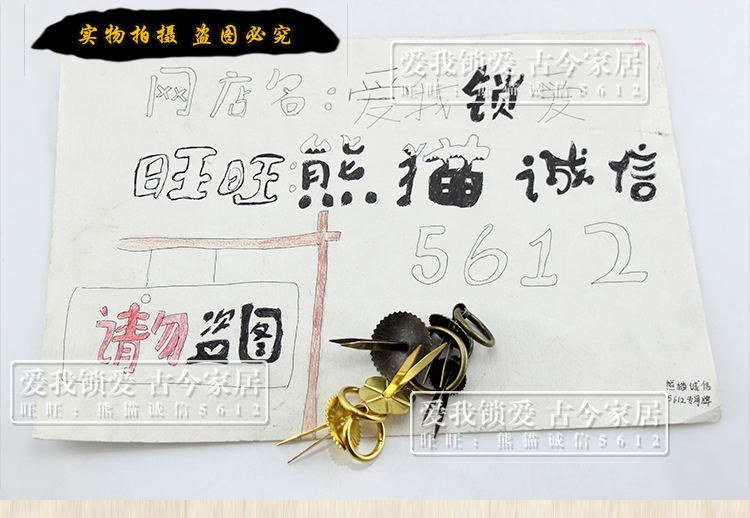 实物拍摄 盗图必究
爱我锁爱 古今家居
旺旺：熊猫诚信5612
网店名：爱我锁爱
旺旺：熊猫诚信
5612
请勿盗图
爱我锁爱 古今家居
旺旺：熊猫诚信5612
熊猫诚信
5612专用牌
爱我锁爱 古今家居
旺旺：熊猫诚信5612